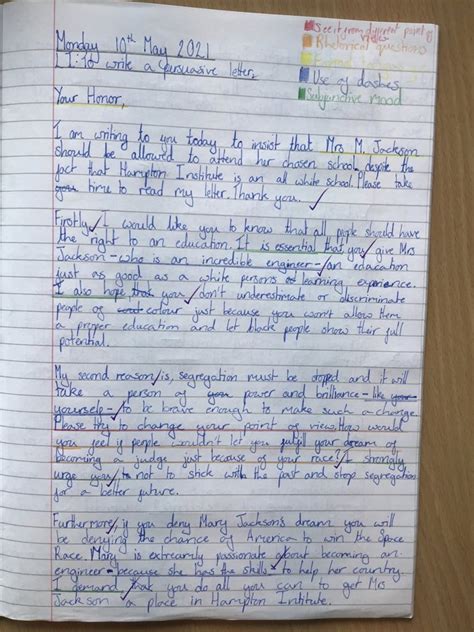 See it from different point of
views
Rhetorical questions
Formal
Use of dashes
Subjunctive mood
Monday 10th May 2021
LI: to write a persuasive letter.
Your Honor,
I am writing to you today to insist that Mrs M. Jackson
should be allowed to attend her chosen school despite the
fact that Hampton Institute is an all white school. Please take
time to read my letter. Thank you.
Firstly, I would like you to know that all people should have
the right to an education. It is essential that you give Mrs
Jackson - who is an incredible engineer - an education
just as good as a white persons learning experience.
I also hope that you don't underestimate or discriminate
people of colour just because you won't allow them
a proper education and let black people show their full
potential.
My second reason is, segregation must be stoped and it will
take a person of power and brilliance - like
yourself - to be brave enough to make such a change.
Please try to change your point of view. How would
you feel if people wouldn't let you fulfill your dream of
becoming a judge just because of your race? I strongly
urge you to not to stick with the past and stop segregation
for a better future.
Furthermore, if you deny Mary Jackson's dream you will
be denying the chance of America to win the Space
Race. Mary is extreamly passionate about becoming an
engineer - because she has the skills - to help her country.
I demand that you do all you can to get Mrs
Jackson a place in Hampton Institute.